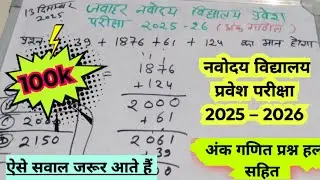 13 दिसम्बर 2025
जवाहर नवोदय विद्यालय प्रवेश
परीक्षा 2025-26 (अंक गणित)
39 + 1876 + 61 + 124 का मान होगा
100k
1876
+ 124
2000
+ 61
2061
+ 39
2150
नवोदय विद्यालय
प्रवेश परीक्षा
2025 – 2026
अंक गणित प्रश्न हल
सहित
ऐसे सवाल जरूर आते हैं